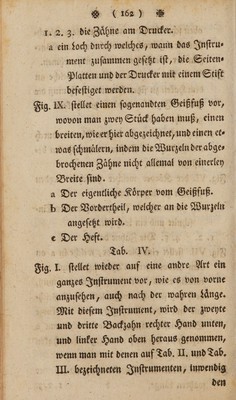 ( 162 )
1. 2. 3. die Zähne am Drucker.
a ein Loch durch welches, wann das Instru-
ment zusammen gesetzt ist, die Seiten-
Platten und der Drucker mit einem Stift
befestiget werden.
Fig. IX. stellet einen sogenandten Geißfuß vor,
wovon man zwey Stück haben muß, einen
breiten, wie er hier abgezeichnet, und einen et-
was schmälern, indem die Wurzeln der abge-
brochenen Zähne nicht allemal von einerley
Breite sind.
a Der eigentliche Körper vom Geißfuß.
b Der Vordertheil, welcher an die Wurzeln
angesetzt wird.
c Der Heft.
Tab. IV.
Fig. I. stellet wieder auf eine andre Art ein
ganzes Instrument vor, wie es von vorne
anzusehen, auch nach der wahren Länge.
Mit diesem Instrument, wird der zweyte
und dritte Backzahn rechter Hand unten,
und linker Hand oben heraus genommen,
wenn man mit denen auf Tab. II. und Tab.
III. bezeichneten Instrumenten, inwendig
den